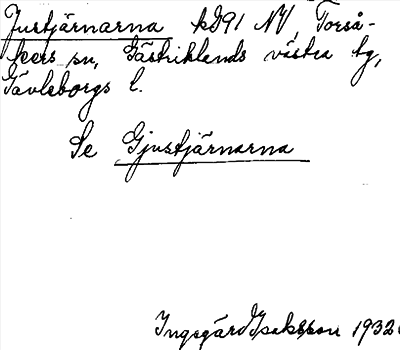 Justjärnarna kG91 NV, Torså-
kers sn, Gästriklands västra tg,
Gävleborgs l.
Se Gjustjärnarna
Ingegärd Isaksson 1932